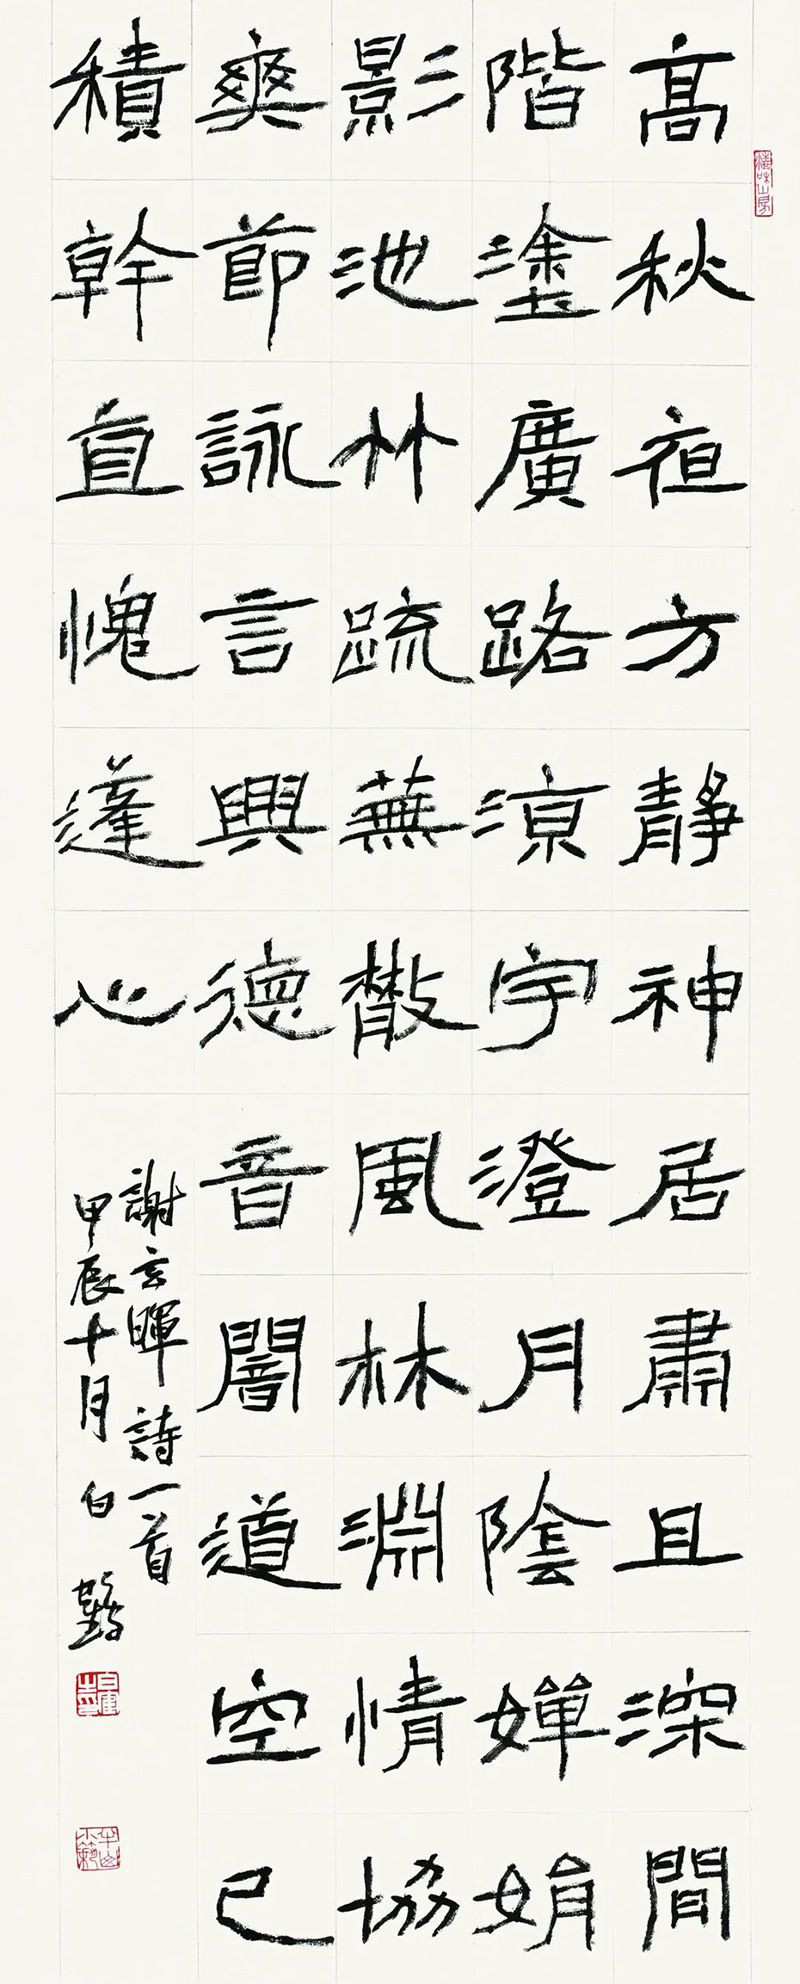 高秋夜方靜神居肅且深間
階塗廣路涼宇澄月陰嬋娟
影池竹疏蕪散風林淵情協
爽節詠言興德音闇道空已
積幹直愧蓬心
謝玄暉詩一首
甲辰十月白